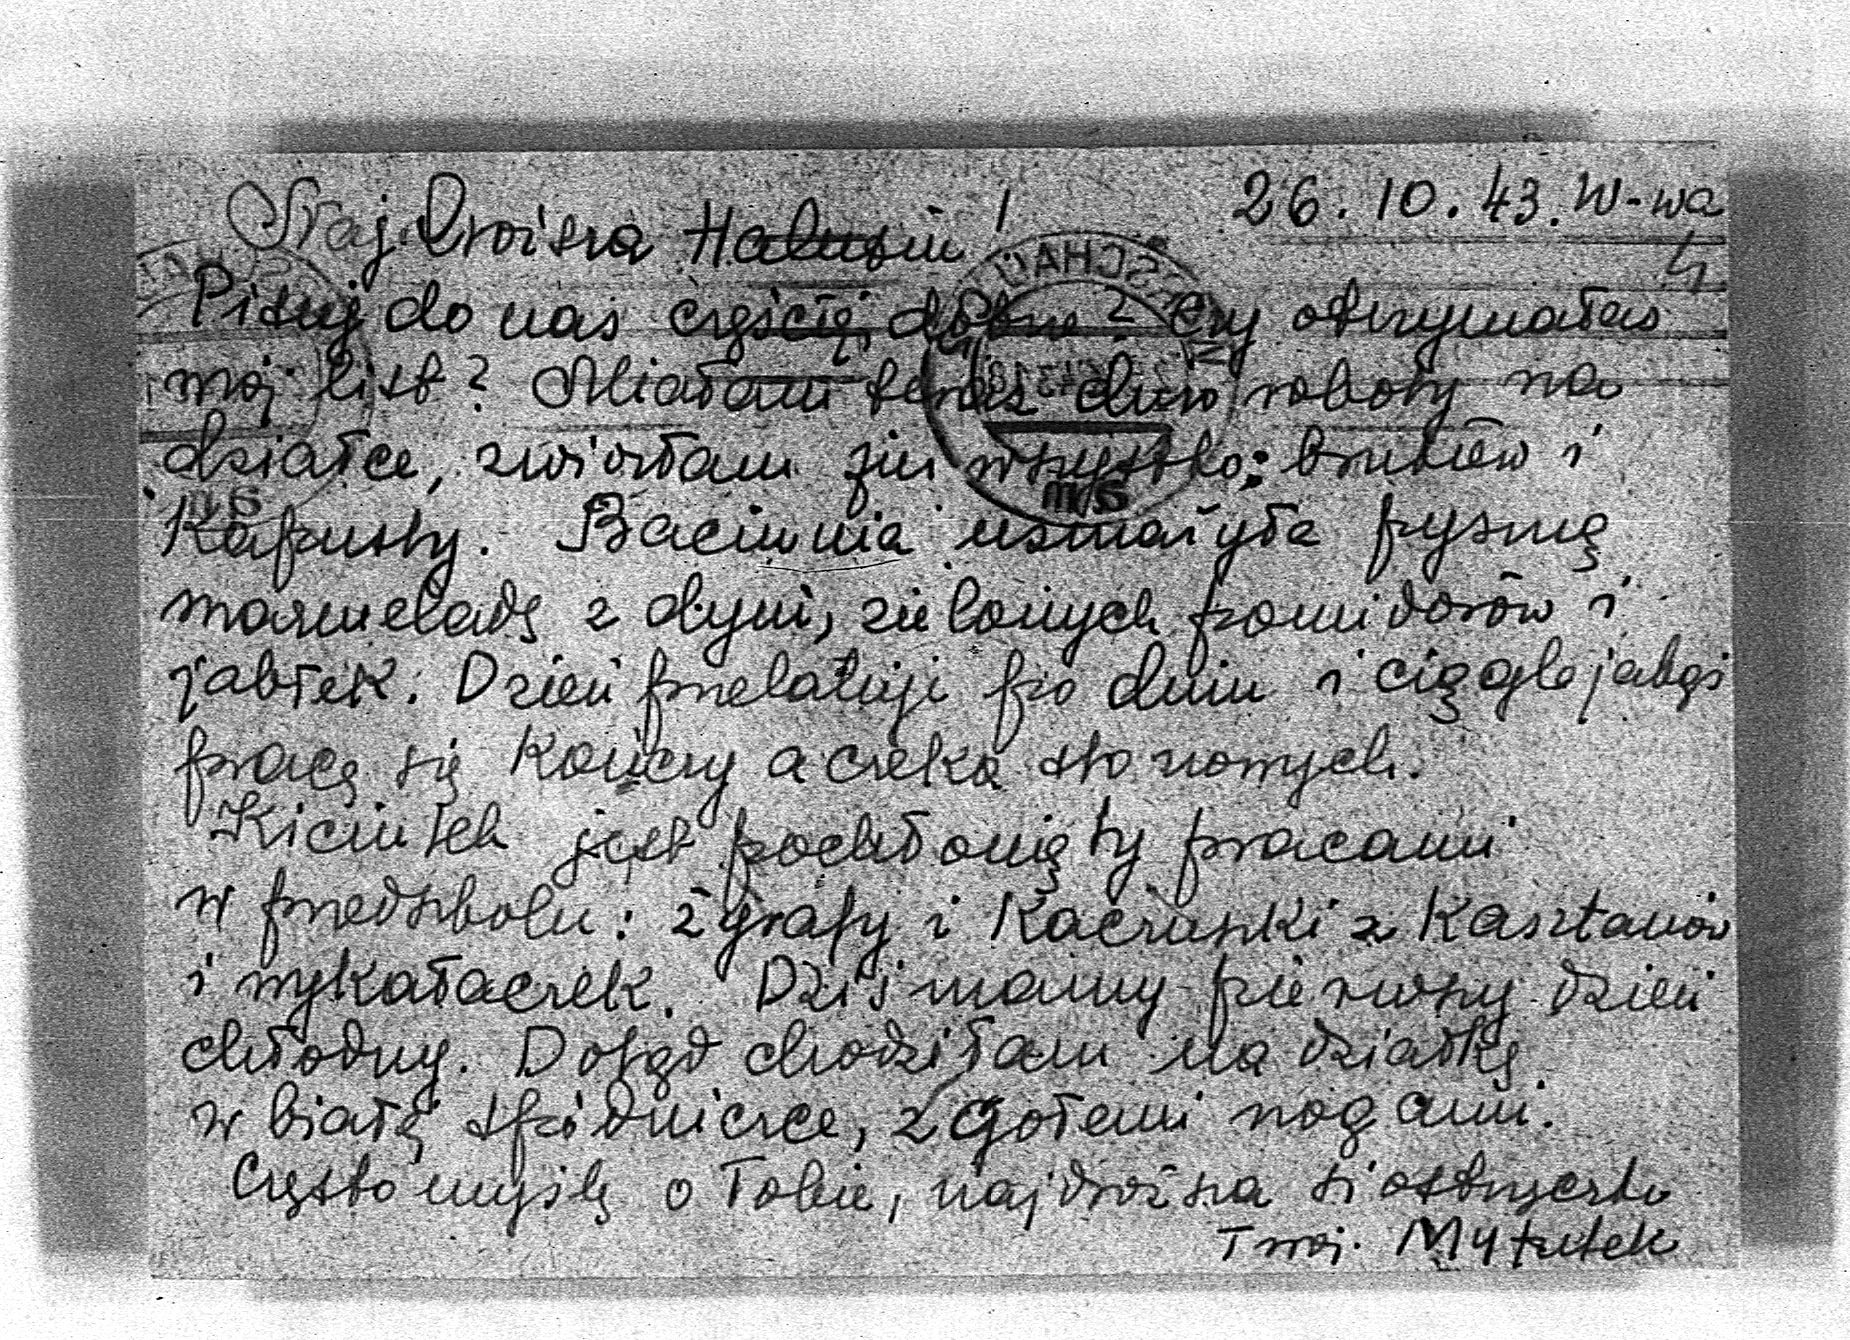 26.10.43. W-wa
Najdroższa Halusiu!
4
Pisuj do nas częściej, dobrze? Czy otrzymałaś
mój list? Miałam teraz dużo roboty na
działce, zwiozłam już wszystko: bruków i
Kapusty. Baciunia usmażyła pyszną
marmeladę z dyni, zielonych pomidorów i
jabłek. Dzień przelatuje po dniu i ciągle jakąś
pracę się kończy a czeka sto nowych.
jest pochłonięty pracami
w przedszkolu: żyrafy i Kaczuszki z Kasztanów
i wykałaczek. Dziś mamy pierwszy dzień
chłodny. Dotąd chodziłam na działkę
w białej spódniczce, z gołemi nogami.
Często myślę o Tobie, najdroższa siostrzyczko
Twój. Mytutek